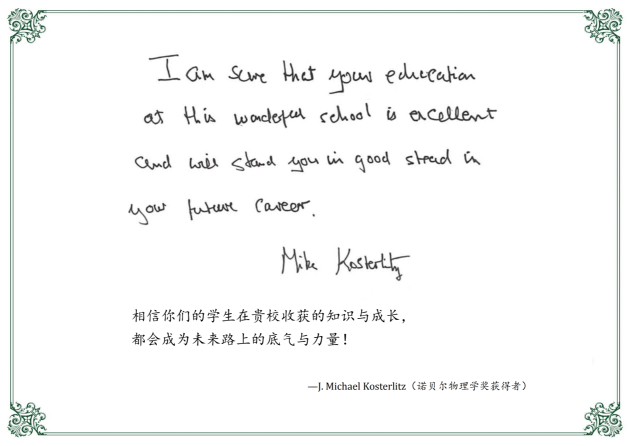 I am sure that your education
at this wonderful school is excellent
and will stand you in good stead in
your future career.
Mike Kosterlitz
相信你们的学生在贵校收获的知识与成长，
都会成为未来路上的底气与力量！
—J. Michael Kosterlitz（诺贝尔物理学奖获得者）